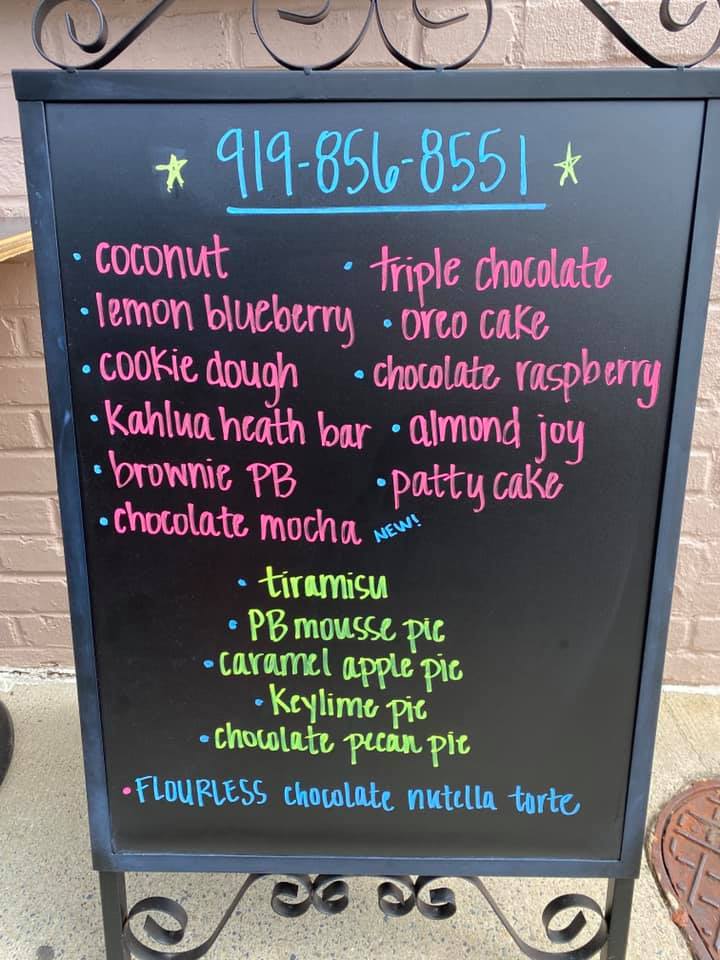 919-856-8551
• coconut
• lemon blueberry
• cookie dough
• Kahlua heath bar
• brownie PB
• chocolate mocha NEW!
• triple chocolate
• oreo cake
• chocolate raspberry
• almond joy
• patty cake
• tiramisu
• PB mousse pie
• caramel apple pie
• Keylime pie
• chocolate pecan pie
• FLOURLESS chocolate nutella torte